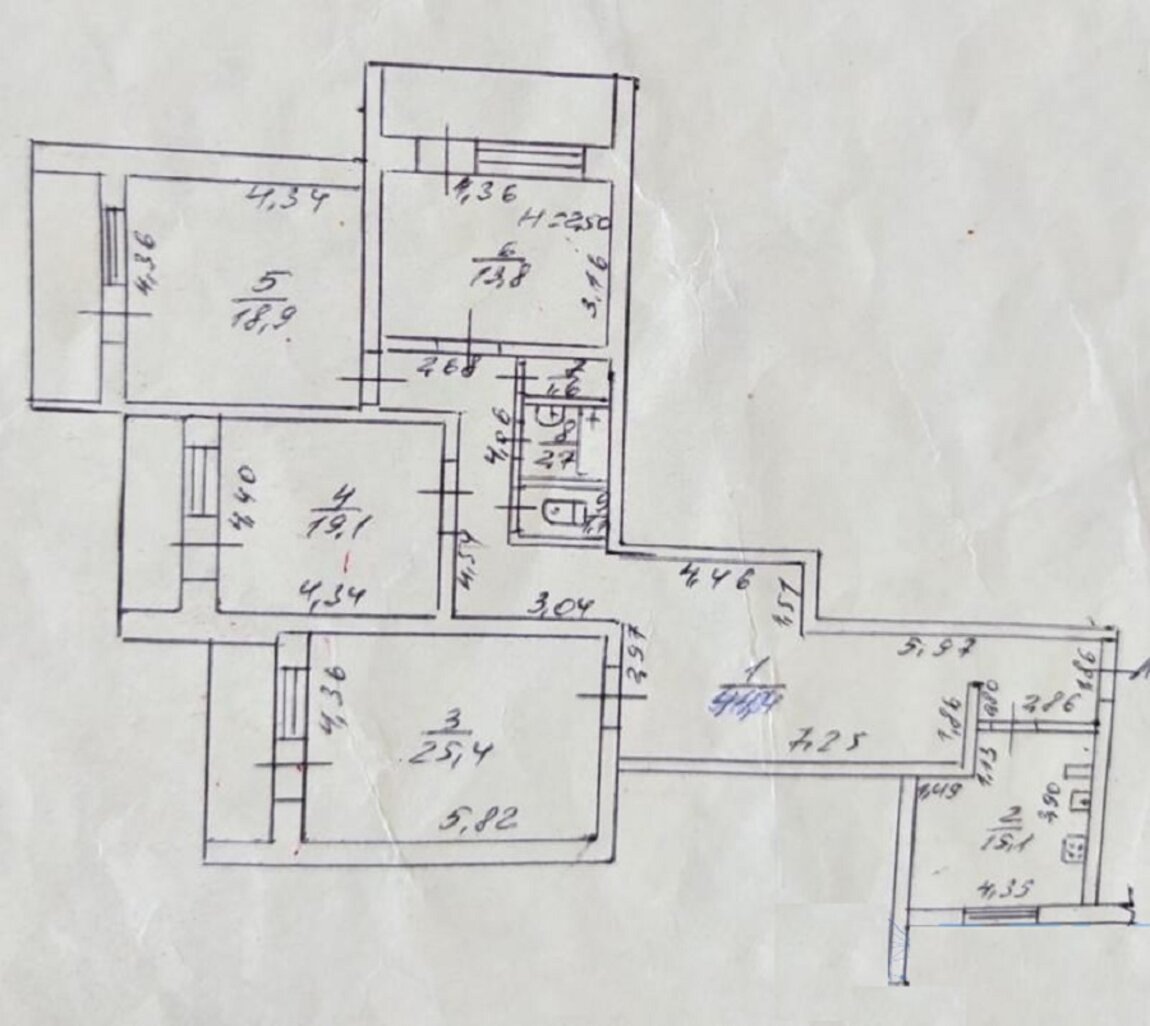 4,36
H=2,50
6
13,8
3,16
4,34
4,36
5
18,9
2,68
7
1,6
4,86
8
2,7
9
1,1
4,40
4
19,1
4,34
4,51
3,04
4,46
1,51
5,97
1,86
2,97
1
1,86
0,80
2,86
7,25
4,36
3
25,4
5,82
1,13
1,49
3,90
2
15,1
4,35